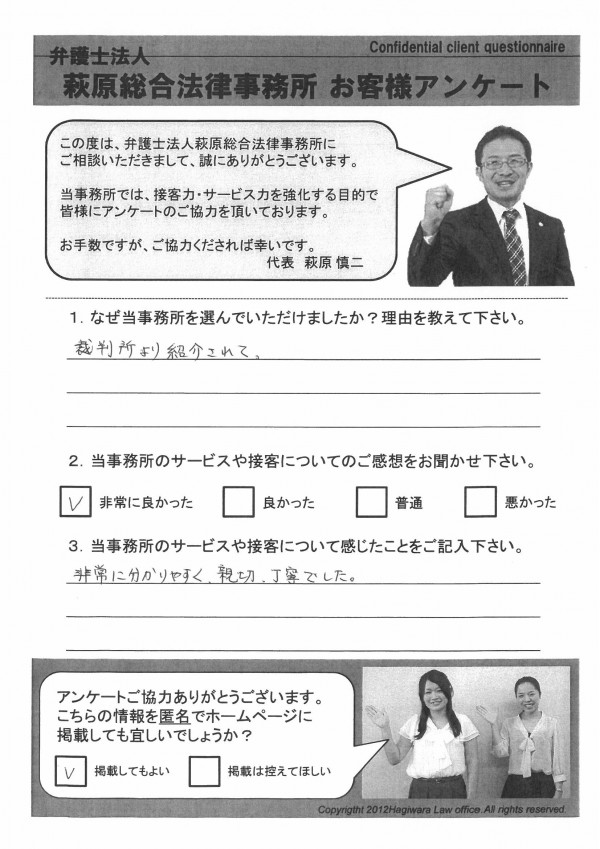 Confidential client questionnaire
弁護士法人
萩原総合法律事務所 お客様アンケート
この度は、弁護士法人萩原総合法律事務所に
ご相談いただきまして、誠にありがとうございます。
当事務所では、接客力・サービス力を強化する目的で
皆様にアンケートのご協力を頂いております。
お手数ですが、ご協力くだされば幸いです。
代表 萩原 慎二
1. なぜ当事務所を選んでいただけましたか？理由を教えて下さい。
裁判所より紹介されて。
2. 当事務所のサービスや接客についてのご感想をお聞かせ下さい。
V 非常に良かった 良かった 普通 悪かった
3. 当事務所のサービスや接客について感じたことをご記入下さい。
非常に分かりやすく、親切、丁寧でした。
アンケートご協力ありがとうございます。
こちらの情報を匿名でホームページに
掲載しても宜しいでしょうか？
V 掲載してもよい 掲載は控えてほしい
Copyrigtht 2012Hagiwara Law office.All rights reserved.